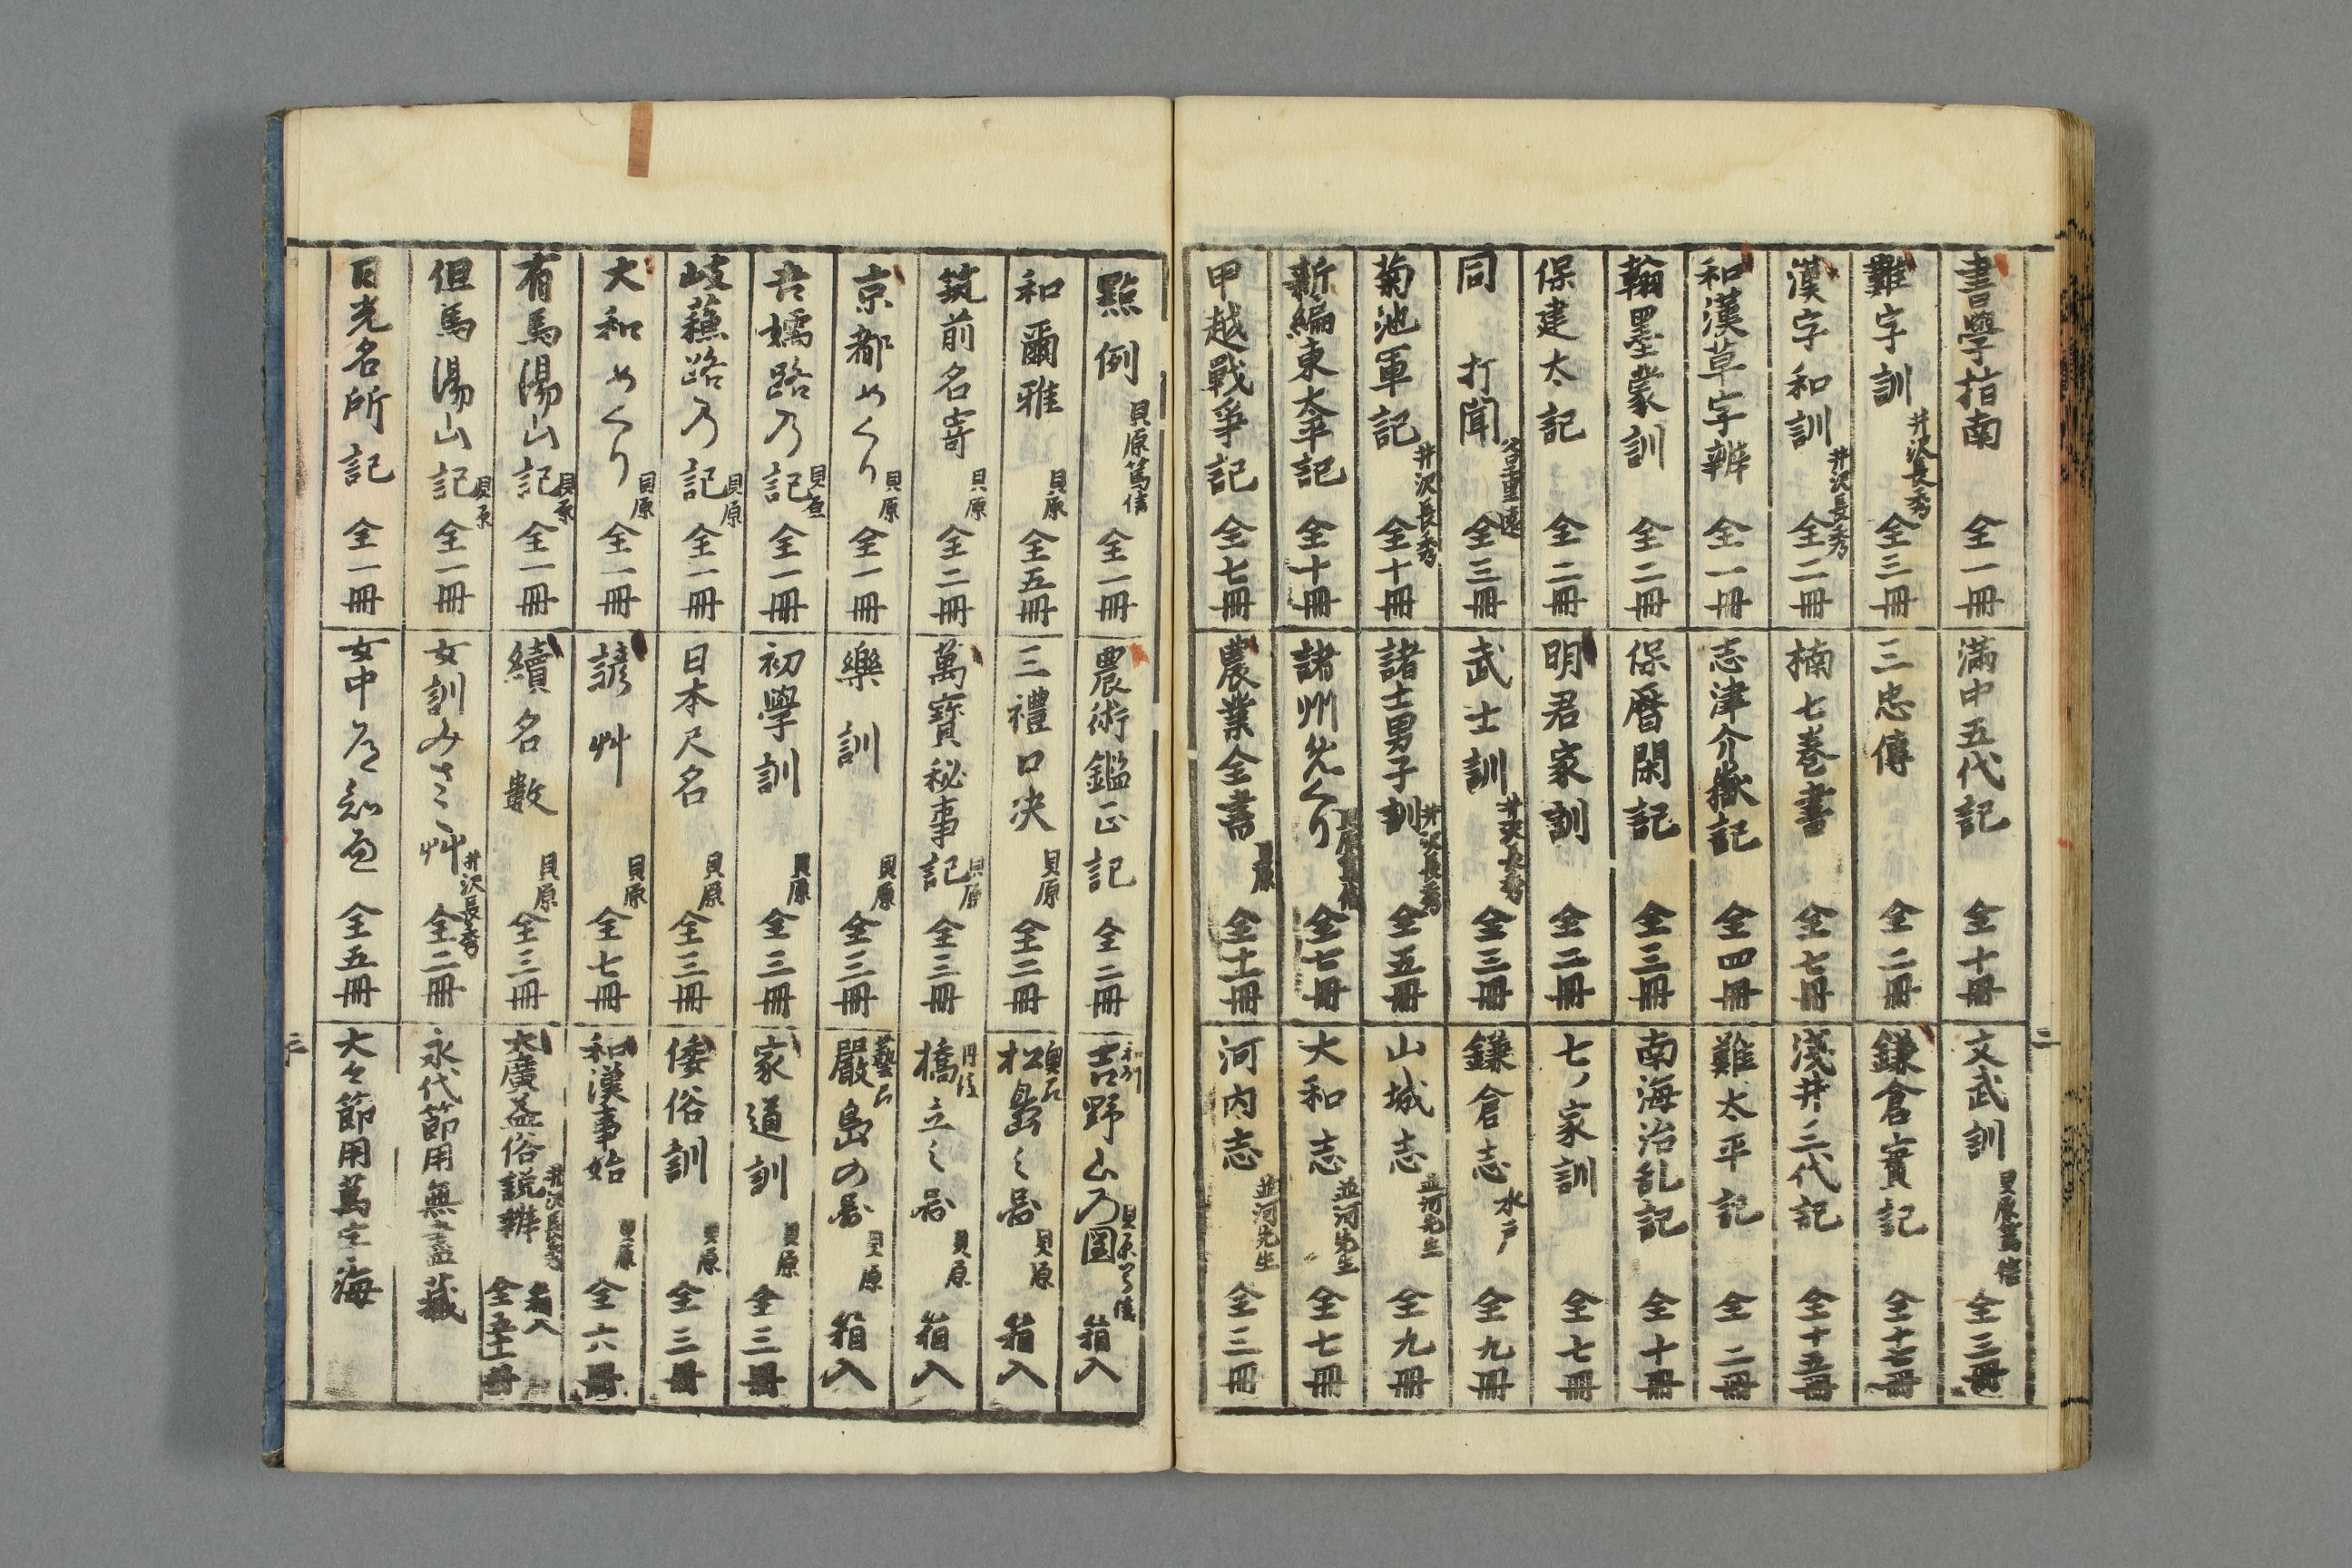 書學指南 全一冊
難字訓 井沢長秀 全三冊
漢字和訓 井沢長秀 全二冊
和漢草字辨 全一冊
翰墨蒙訓 全二冊
保建太記 全二冊
同 打聞 谷重遠 全三冊
菊池軍記 井沢長秀 全十冊
新編東太平記 全十冊
甲越戰爭記 全七冊
滿中五代記 全十冊
三忠傳 全二冊
楠七巻書 全七冊
志津介嶽記 全四冊
保曆閑記 全三冊
明君家訓 全二冊
武士訓 井沢長秀 全三冊
諸士男子訓 井沢長秀 全五冊
諸州めくり 貝原篤信 全七冊
農業全書 貝原 全十一冊
文武訓 貝原篤信 全三冊
鎌倉實記 全十七冊
淺井三代記 全十五冊
難太平記 全二冊
南海治乱記 全十冊
七ノ家訓 全七冊
鎌倉志 水戸 全九冊
山城志 並河先生 全九冊
大和志 並河先生 全七冊
河内志 並河先生 全三冊
二
點例 貝原篤信 全一冊
和爾雅 貝原 全五冊
筑前名寄 貝原 全二冊
京都めくり 貝原 全一冊
吾嬬路乃記 貝原 全一冊
岐蘓路乃記 貝原 全一冊
大和めくり 貝原 全一冊
有馬湯山記 貝原 全一冊
但馬湯山記 貝原 全一冊
日光名所記 全一冊
農術鑑正記 全二冊
三禮口決 貝原 全二冊
萬寳秘事記 貝原 全三冊
樂訓 貝原 全三冊
初學訓 貝原 全三冊
日本尺名 貝原 全三冊
諺艸 貝原 全七冊
續名數 貝原 全三冊
女訓みさこ艸 井沢長秀 全二冊
女中 全五冊
和州 吉野山乃圖 貝原 箱入
奥州 松島之啚 貝原 箱入
丹後 橋立之啚 貝原 箱入
藝州 嚴島の啚 貝原 箱入
家道訓 貝原 全三冊
倭俗訓 貝原 全三冊
和漢事始 貝原 全六冊
大廣益俗説辨 井沢長秀 箱入 全五十一冊
永代節用無盡藏
大々節用萬字海
三